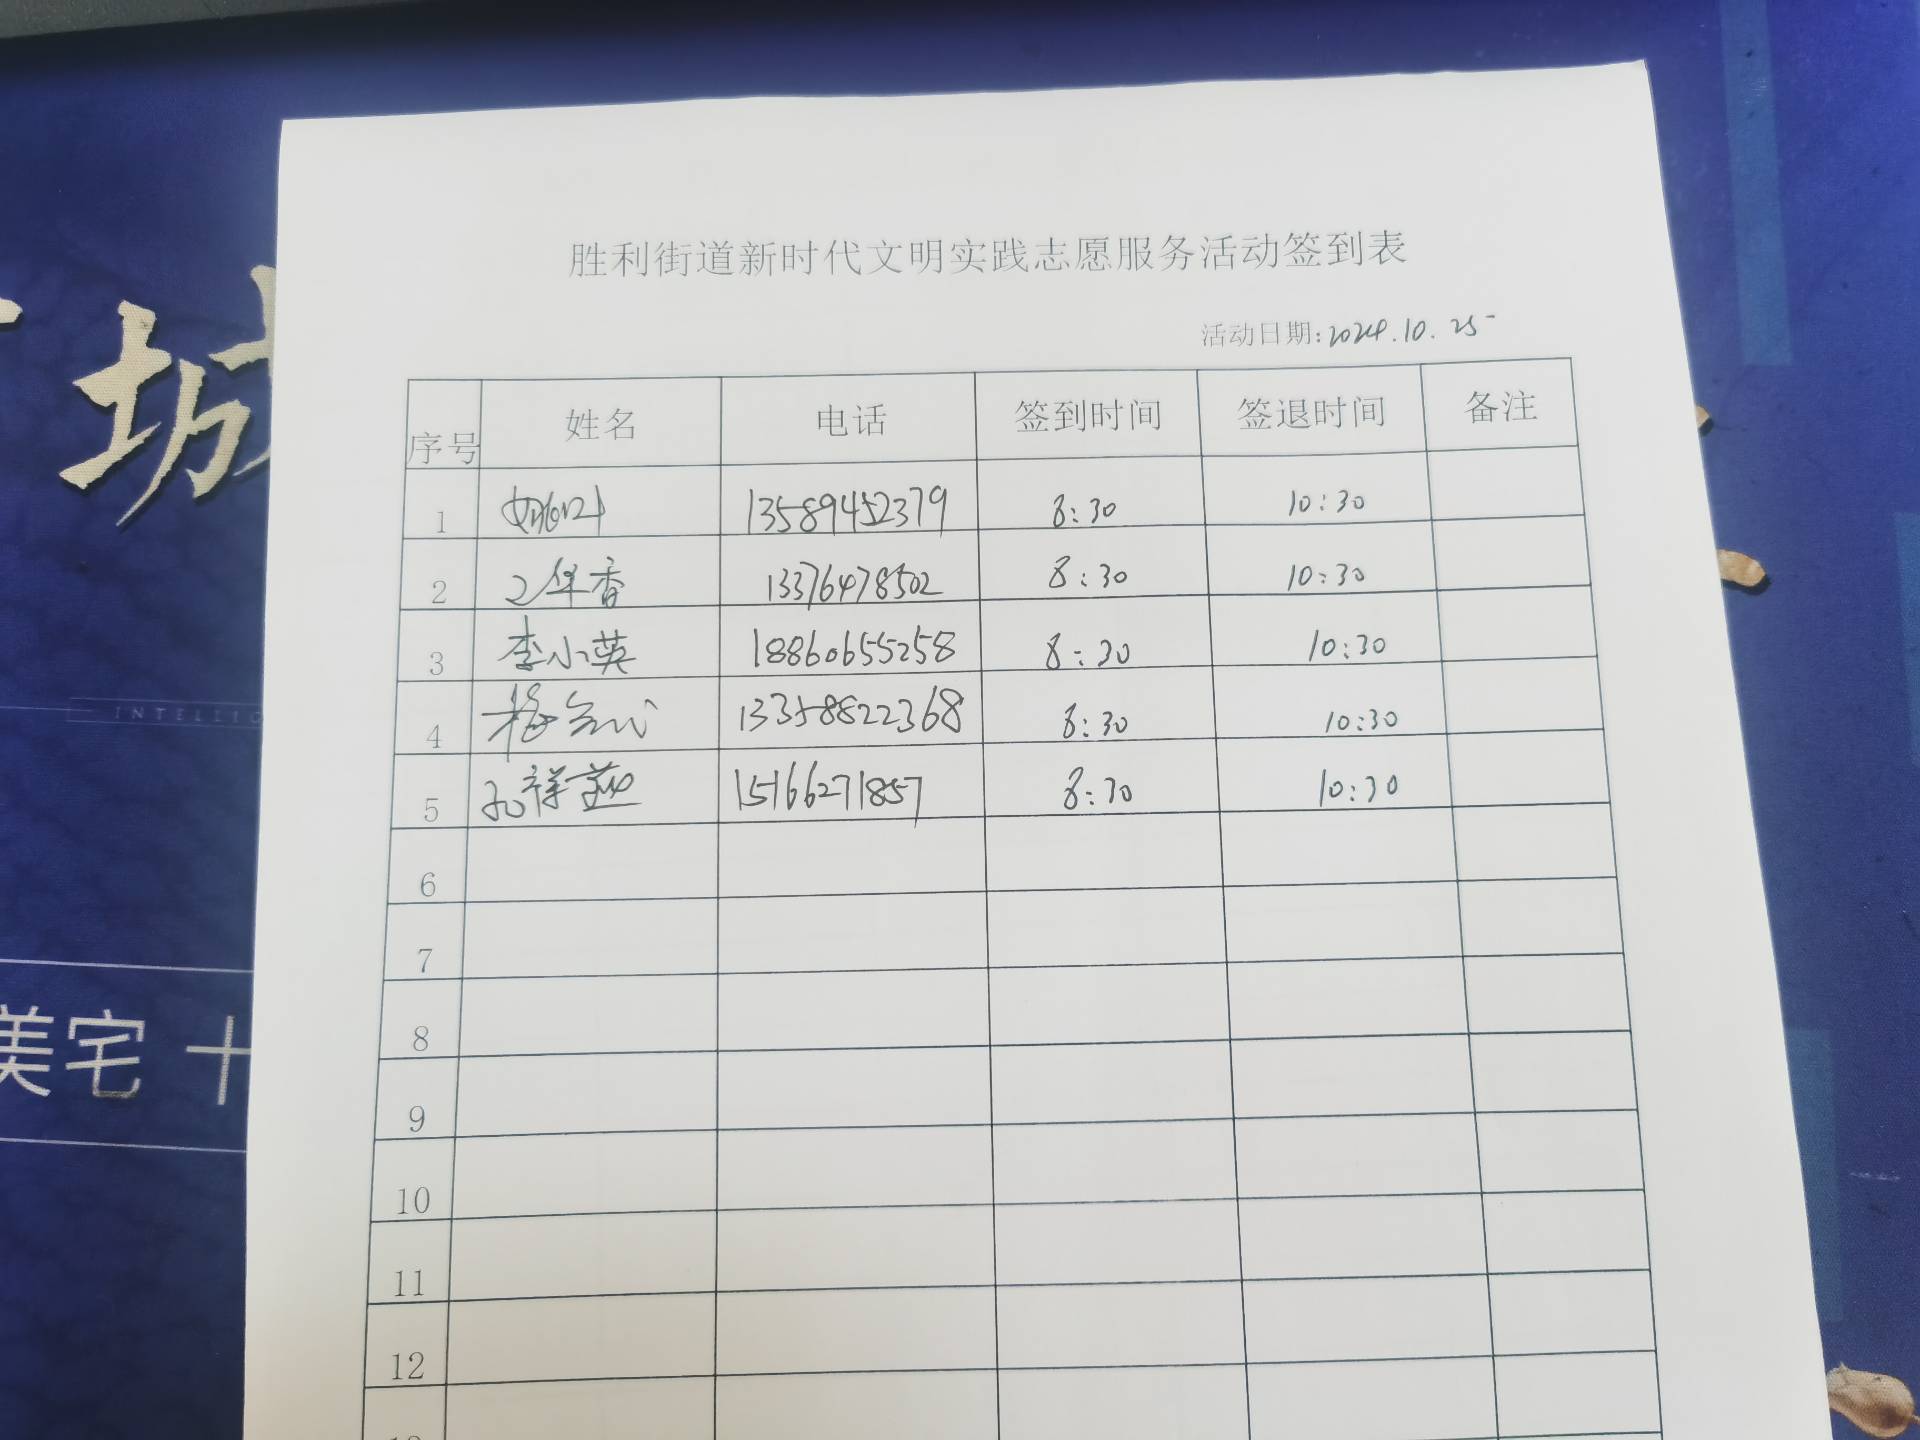 坊
INTELLIG
美宅 十
胜利街道新时代文明实践志愿服务活动签到表
活动日期:2024.10.25
序号 姓名 电话 签到时间 签退时间 备注
1 13589452379 8:30 10:30
2 13376478502 8:30 10:30
3 李小英 18860655258 8:30 10:30
4 13358822368 8:30 10:30
5 15166271857 8:30 10:30
6
7
8
9
10
11
12